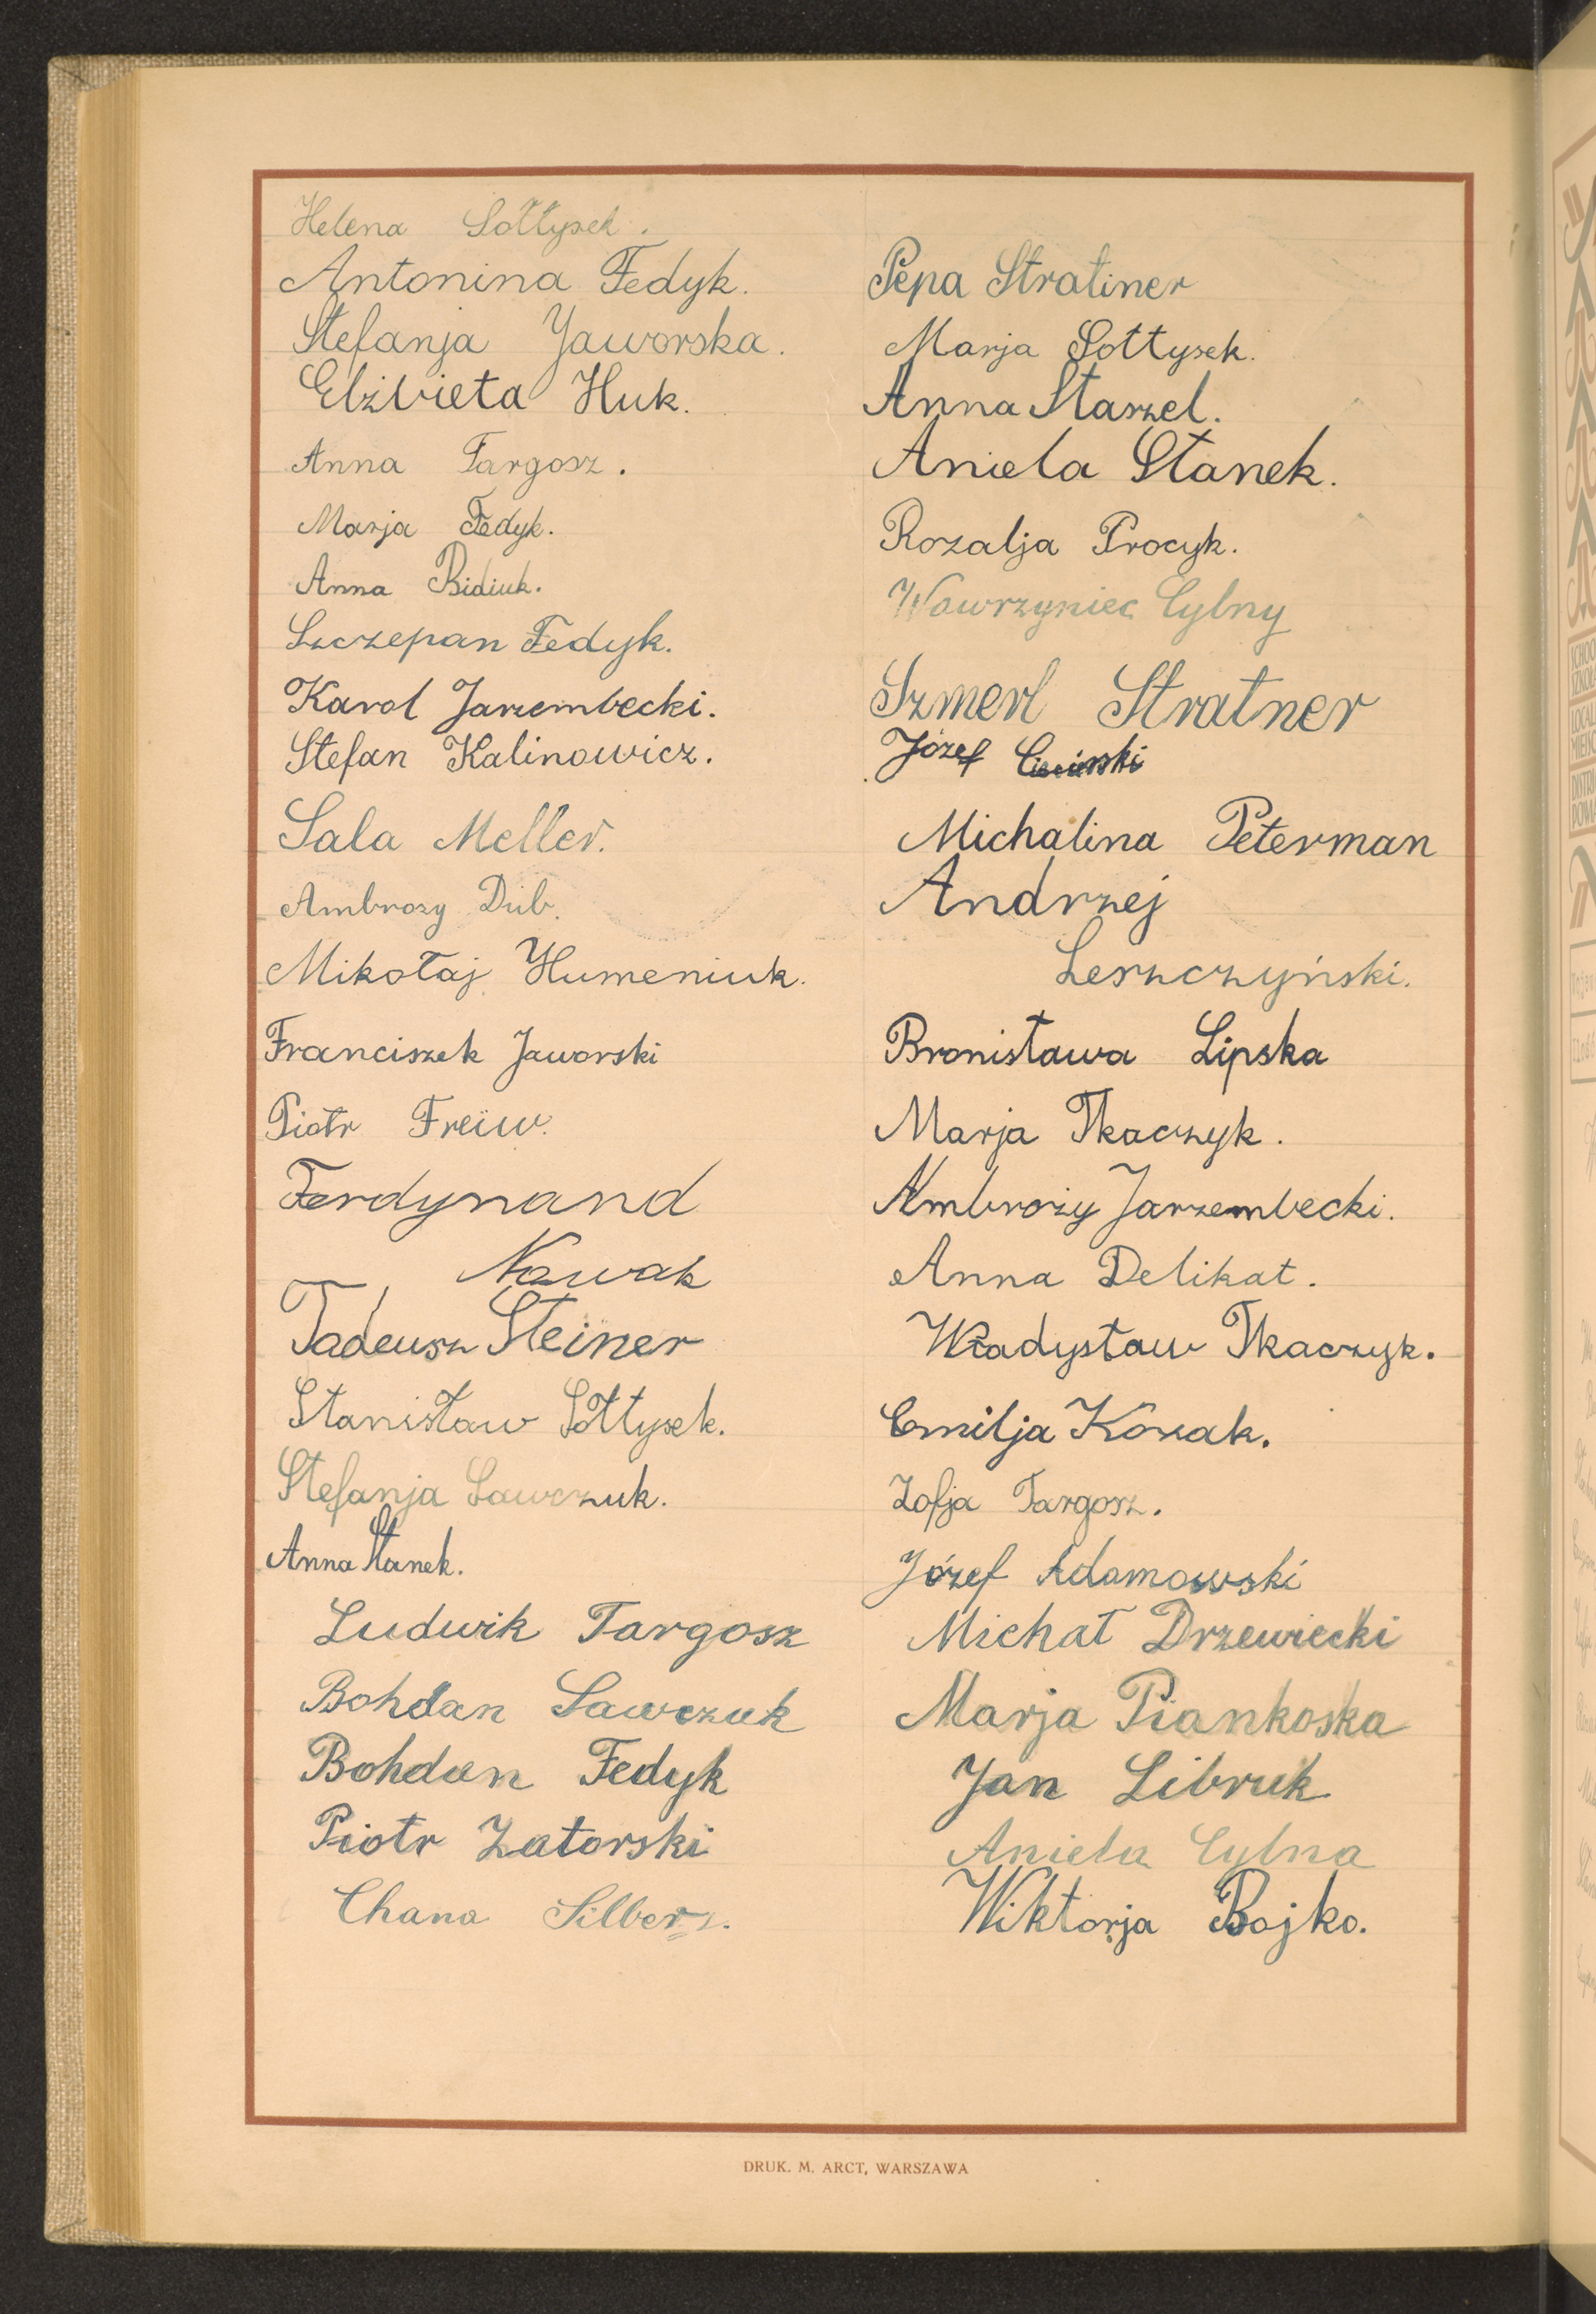 Helena Sołtysek.
Antonina Fedyk.
Stefanja Jaworska.
Elżbieta Huk.
Anna Targosz.
Marja Fedyk.
Anna Bidiuk.
Szczepan Fedyk.
Karol Jarzembecki.
Stefan Kalinowicz.
Sala Meller.
Ambrozy Dub.
Mikołaj Humeniuk.
Franciszek Jaworski
Piotr Freiw.
Ferdynand
Nowak
Tadeusz Steiner
Stanisław Sołtysek.
Stefanja Sawczuk.
Anna Stanek.
Ludwik Targosz
Bohdan Sawczuk
Bohdan Fedyk
Piotr Zatorski
Chana Silberz.
Pepa Stratiner
Marja Sołtysek.
Anna Starzel.
Aniela Stanek.
Rozalja Procyk.
Wawrzyniec Cylny
Szmerl Stratner
Józef
Michalina Peterman
Andrzej
Leszczyński.
Bronisława Lipska
Marja Tkaczyk.
Ambroży Jarzembecki.
Anna Delikat.
Władysław Tkaczyk.
Emilja Kozak.
Zofja Targosz.
Józef Adamowski
Michał Drzewiecki
Marja Piankoska
Jan Libruk
Aniela Cylna
Wiktorja Bojko.
DRUK. M. ARCT, WARSZAWA